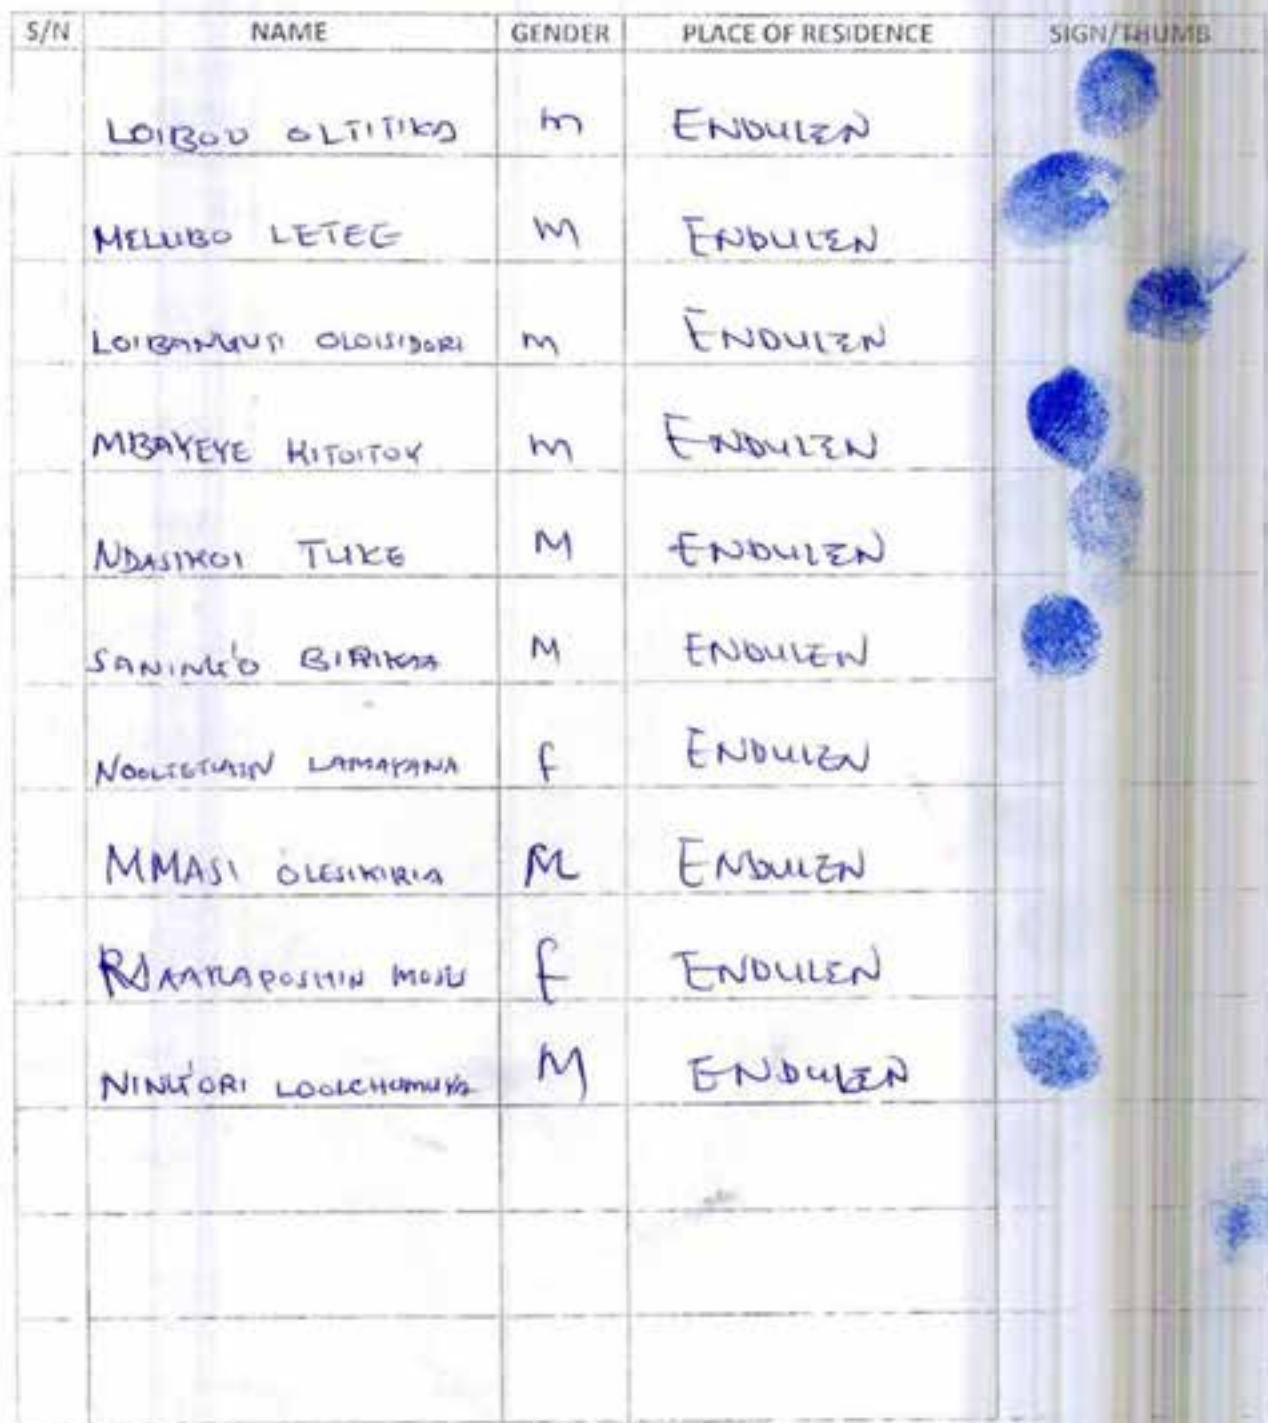 S/N NAME GENDER PLACE OF RESIDENCE SIGN/THUMB
LOIBOU OLTITIKA m ENDULEN
MELUBO LETEE M ENDULEN
OLOISIDORI m ENDULEN
MBAYEYE KITOITOY m ENDULEN
NDASIKOI TUKE M ENDULEN
SANING'O BIRIKAA M ENDULEN
LAMAYANA F ENDULEN
MMASI OLESIKIRIA M ENDULEN
F ENDULEN
NING'ORI M ENDULEN